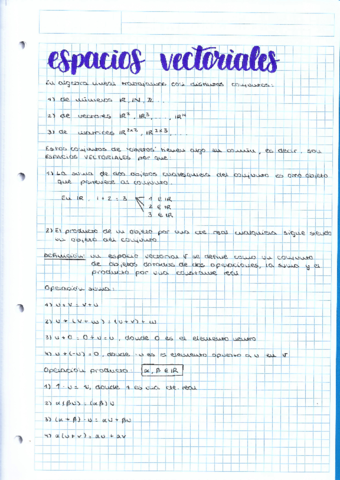 espacios vectoriales
En álgebra lineal trabajamos con distintos conjuntos:
1) de números ℝ, ℕ, ...
2) de vectores ℝ², ℝ³, ..., ℝ⁴
3) de matrices ℝ²ˣ², ℝ²ˣ³...
Estos conjuntos de "cosas" tienen algo en común, es decir, son
ESPACIOS VECTORIALES por que:
1) La suma de dos objetos cualesquiera del conjunto es otro objeto
que pertenece al conjunto.
En ℝ, 1+2=3 1 ∈ ℝ
2 ∈ ℝ
3 ∈ ℝ
2) El producto de un objeto por una cte real cualquiera sigue siendo
un objeto del conjunto.
Definición: un espacio vectorial V se define como un conjunto
de objetos dotados de dos operaciones, la suma y el
producto por una constante real.
Operación suma:
1) u+v = v+u
2) u+(v+w) = (u+v)+w
3) u+0 = 0+u = u, donde 0 es el elemento neutro
4) u+(-u) = 0, donde -u es el elemento opuesto a u en V
Operación producto: α, β ∈ ℝ
1) 1·u = u, donde 1 es una cte. real
2) α(βu) = (αβ)u
3) (α+β)·u = αu+βu
4) α(u+v) = αu+αv